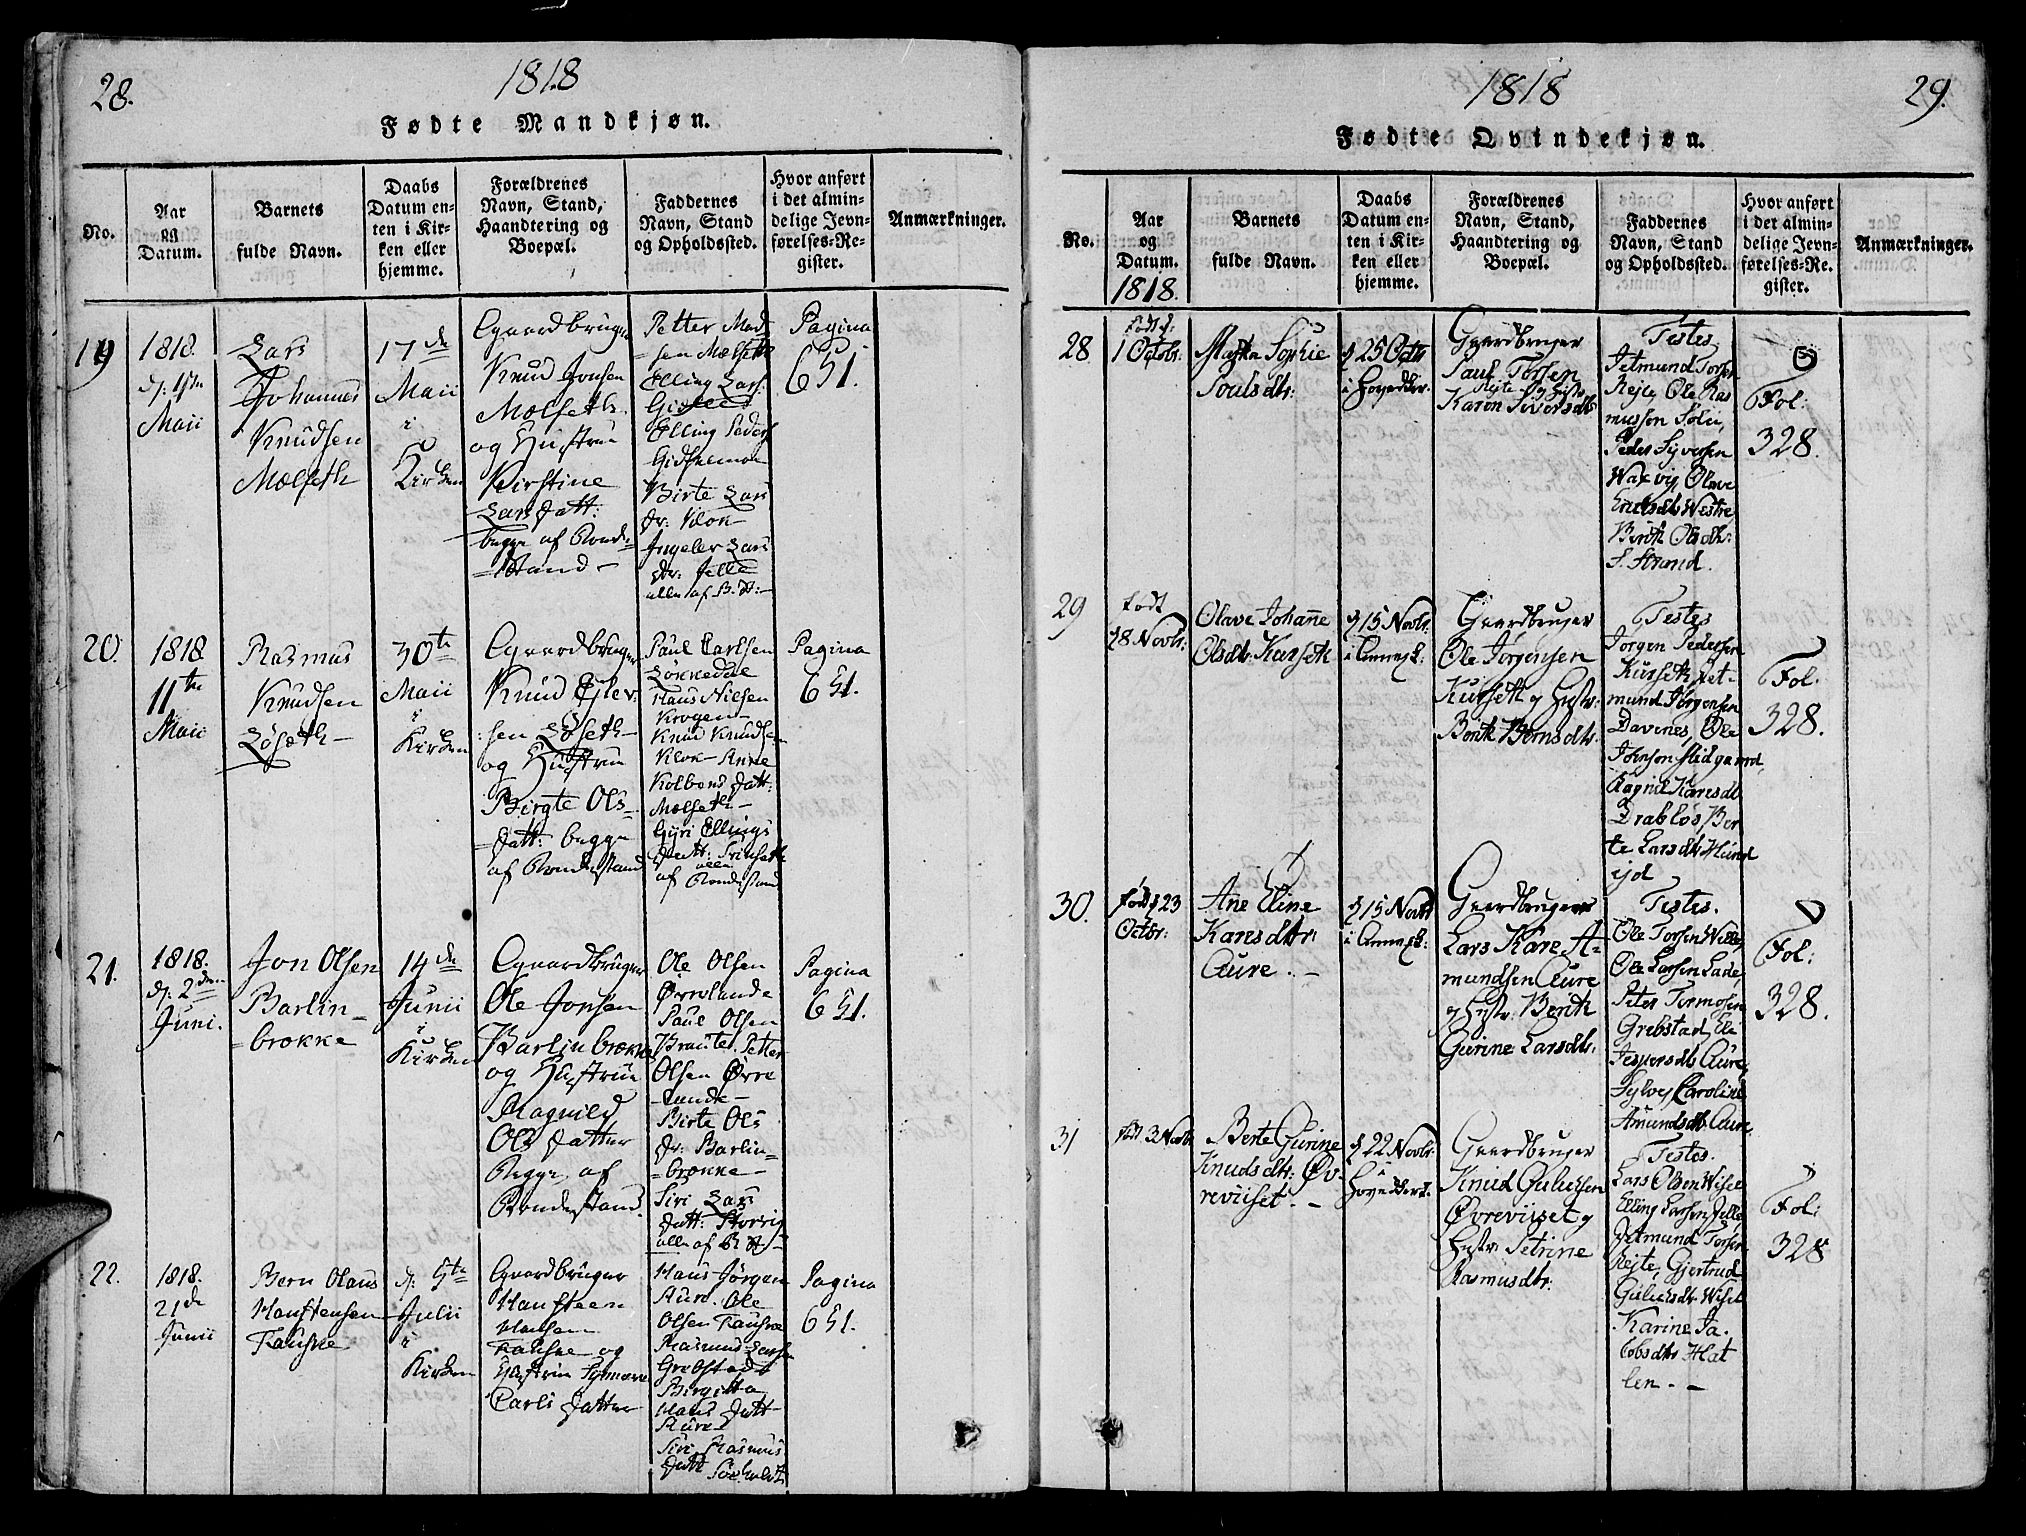 28.
1818
Fødte Mandkjøn.
No.
Aar
og
Datum.
Barnets
fulde Navn.
Daabs
Datum en-
ten i Kir-
ken eller
hjemme.
Forældrenes
Navn, Stand,
Haandtering og
Boepæl.
Faddernes
Navn, Stand
og Opholdssted.
Hvor anført
i det almin-
delige Jevn-
førelses-Re-
gister.
Anmærkninger.
19
1818.
Maii
Lars
Johannes
Knudsen
Molseth
17de
Maii
i
Kirken
Gaardbruger
Knud Jonsen
Molseth.
og Hustrue
Kirstine
Lars Datt:
begge af Bonde
=Stand -
Petter Mad
=sen Molseth
Elling Lars
Elling Peders
Birte Lars
Dr: Klok-
Ingeler Lars
Dr: Jelle
alle af B. St:-
Pagina
651.
20.
1818
11te
Maii
Rasmus
Knudsen
Løseth-
30te
Maii
i
Kirken
Gaardbruger
Knud
sen Løseth-
og Hustrue
Birgte Ols-
=Datt: begge
af Bondestand
Paul Carlsen
Løkkedal
Hans Nielsen
Krogen-
Knud Knudsen
Klok- Anne
Kolbens Datt:
Molseth-
Gyri Ellings
Datt:
alle
af Bondestand
Pagina
651.
21.
1818.
d: 2den
Juni.
Jon Olsen
Barlin-
=brokke
14de
Junii
i
Kirken
Gaardbruger
Ole Jonsen
Barlinbrokke
og Hustrue
Ragnild
Ols Datter
Begge af
Bondestand.
Ole Olsen
Paul Olsen
Petter
Olsen Ørre
Birte Ols
Dr: Barlin-
=brokke-
Siri Lars
Datt:
alle af B St-
Pagina
651.
22.
1818.
21de
Junii
Bern Olaus
Hanstensen
Fauske
d: 5te
Julii
i
Kirken
Gaardbruger
Hansteen
Hansen
Fauske og
Hustrue
Carls Datter
Hans Jørgen
Aure. Ole
Olsen Fauske
Rasmus Larsen
Grebstad
Birgitta
Hans Datt-
Aure-
Siri Rasmus
Datt Søeholt
Pagina
651.
1818
29.
Fødte Qvindekjøn.
No.
Aar
og
Datum.
1818.
Barnets
fulde Navn.
Daabs
Datum en-
ten i Kir-
ken eller
hjemme.
Forældrenes
Navn, Stand,
Haandtering og
Boepæl.
Faddernes
Navn, Stand
og Opholdssted.
Hvor anført
i det almin-
delige Jevn-
førelses-Re-
gister.
Anmærkninger.
28
født d:
1 Octobr:
Sophie
Poulsdtr:
d 25 Octr
i
Gaardbruger
Paul Torsen
Rejte og Hstr
Karen Siversdtr
Testes
Jetmund Torsen
Rejte, Ole Ras
mussen Solie,
Peder Syversen
Waxvig, Olave
Enelsdtr Westre
Berte Olsdtr:
S. Strand.
Fol:
328.
29
født
d 8 Novbr:
Olave Johanne
Olsdtr Kurseth
d 15 Novbr:
i
Gaardbruger
Ole Jørgensen
Kurseth og Hstr:
Berit Bernsdtr.
Testes
Jørgen Pedersen
Kurseth, Jet-
mund Jørgensen
Davenes, Ole
Johnson Midgaard,
Ragnil Karesdtr
Drabløs, Ber
te Larsdtr Hund
ejd
Fol.
328.
30.
født d 23
Octbr:
Ane Eline
Karesdtr:
Aure. -
d 15 Novbr
i
Gaardbruger
Lars Kåre A-
mundsen Aure
og Hstr: Berit
Gurine Larsdtr:
Testes.
Ole Torsen Wille,
Ole Larsen Lade,
Peter Tormosen
Grebstad, Eli
Jespersdtr Aure,
Sylvej Caroline
Amundsdtr Aure.
Fol:
328.
31
født 3 Novbr
Berte Gurine
Knudsdtr: Øv-
reviiset. -
d 22 Novbr:
i
Gaardbruger
Knud Guliksen
Øvreviiset og
Hstr: Petrine
Rasmusdtr:
Testes.
Lars Olsen Wiset
Elling Larsen Jelle
Jetmund Torsen
Rejte, Gjertrud
Guliksdtr Wiset
Karine Ja-
cobsdtr Hat
len. -
Fol:
328